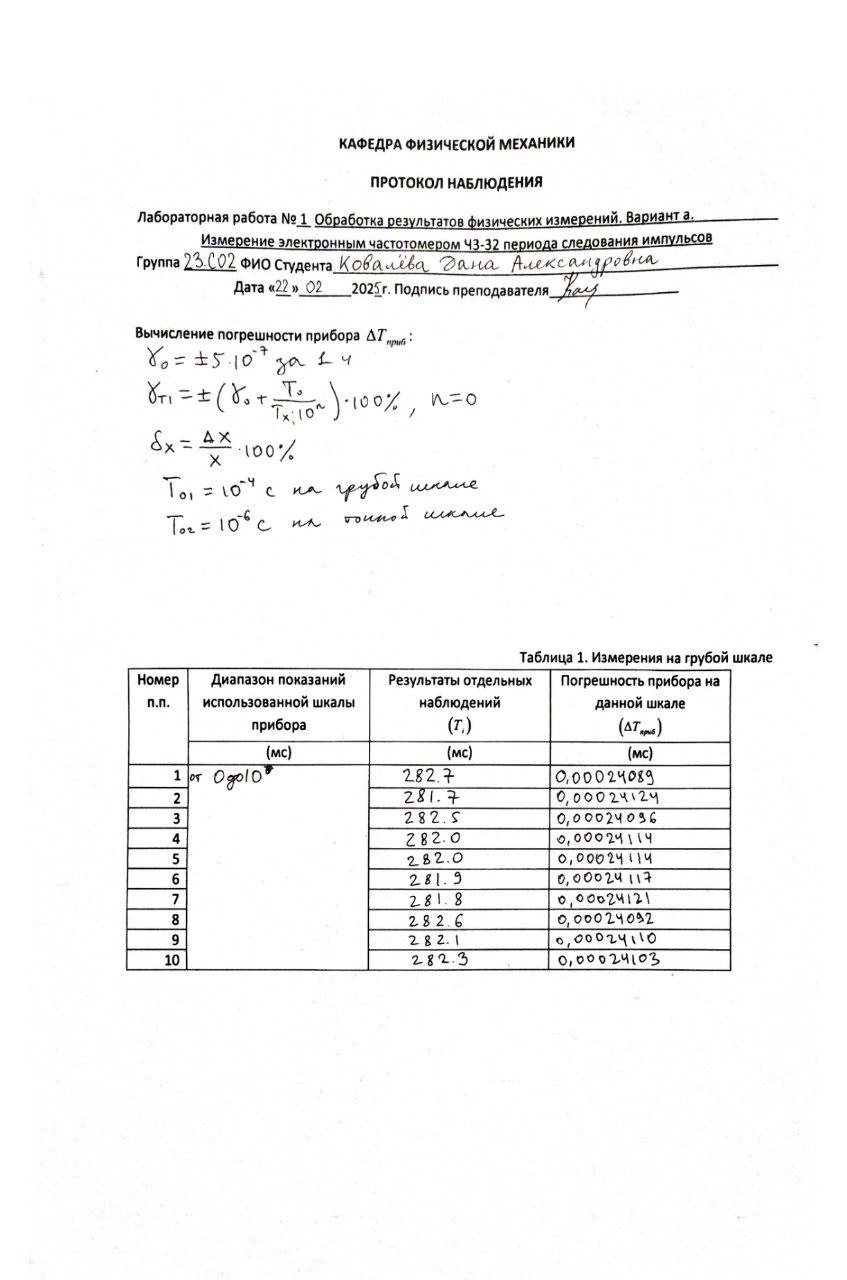 КАФЕДРА ФИЗИЧЕСКОЙ МЕХАНИКИ
ПРОТОКОЛ НАБЛЮДЕНИЯ
Лабораторная работа № 1 Обработка результатов физических измерений. Вариант а.
Измерение электронным частотомером ЧЗ-32 периода следования импульсов
Группа 23.С02 ФИО Студента Ковалёва Дана Александровна
Дата «22» 02 2025г. Подпись преподавателя
Вычисление погрешности прибора ΔTприб:
γ₀ = ±5·10⁻⁷ за 1 ч
γT1 = ±(γ₀ + T₀/(Tx·10ⁿ))·100%, n=0
δx = Δx/x ·100%
T₀₁ = 10⁻⁴ с на грубой шкале
T₀₂ = 10⁻⁶ с на точной шкале
Таблица 1. Измерения на грубой шкале
Номер п.п. Диапазон показаний использованной шкалы прибора Результаты отдельных наблюдений (Ti) Погрешность прибора на данной шкале (ΔTприб)
(мс) (мс) (мс)
1 от 0 до 10 282.7 0,00024089
2 281.7 0,00024124
3 282.5 0,00024096
4 282.0 0,00024114
5 282.0 0,00024114
6 281.9 0,00024117
7 281.8 0,00024121
8 282.6 0,00024092
9 282.1 0,00024110
10 282.3 0,00024103